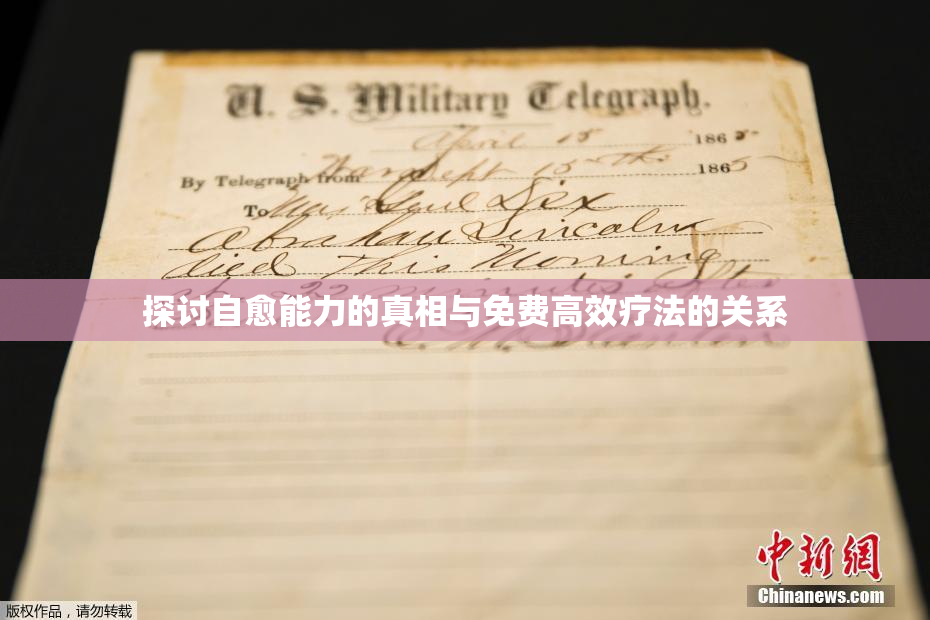 U. S. Military Telegraph.
April 15 1865
By Telegraph from War Dept 15th 1865
To Maj Genl Dix
Abraham Lincoln
died This Morning
at 22 minutes after
探讨自愈能力的真相与免费高效疗法的关系
E. M. Stanton
中新网
Chinanews.com
版权作品,请勿转载